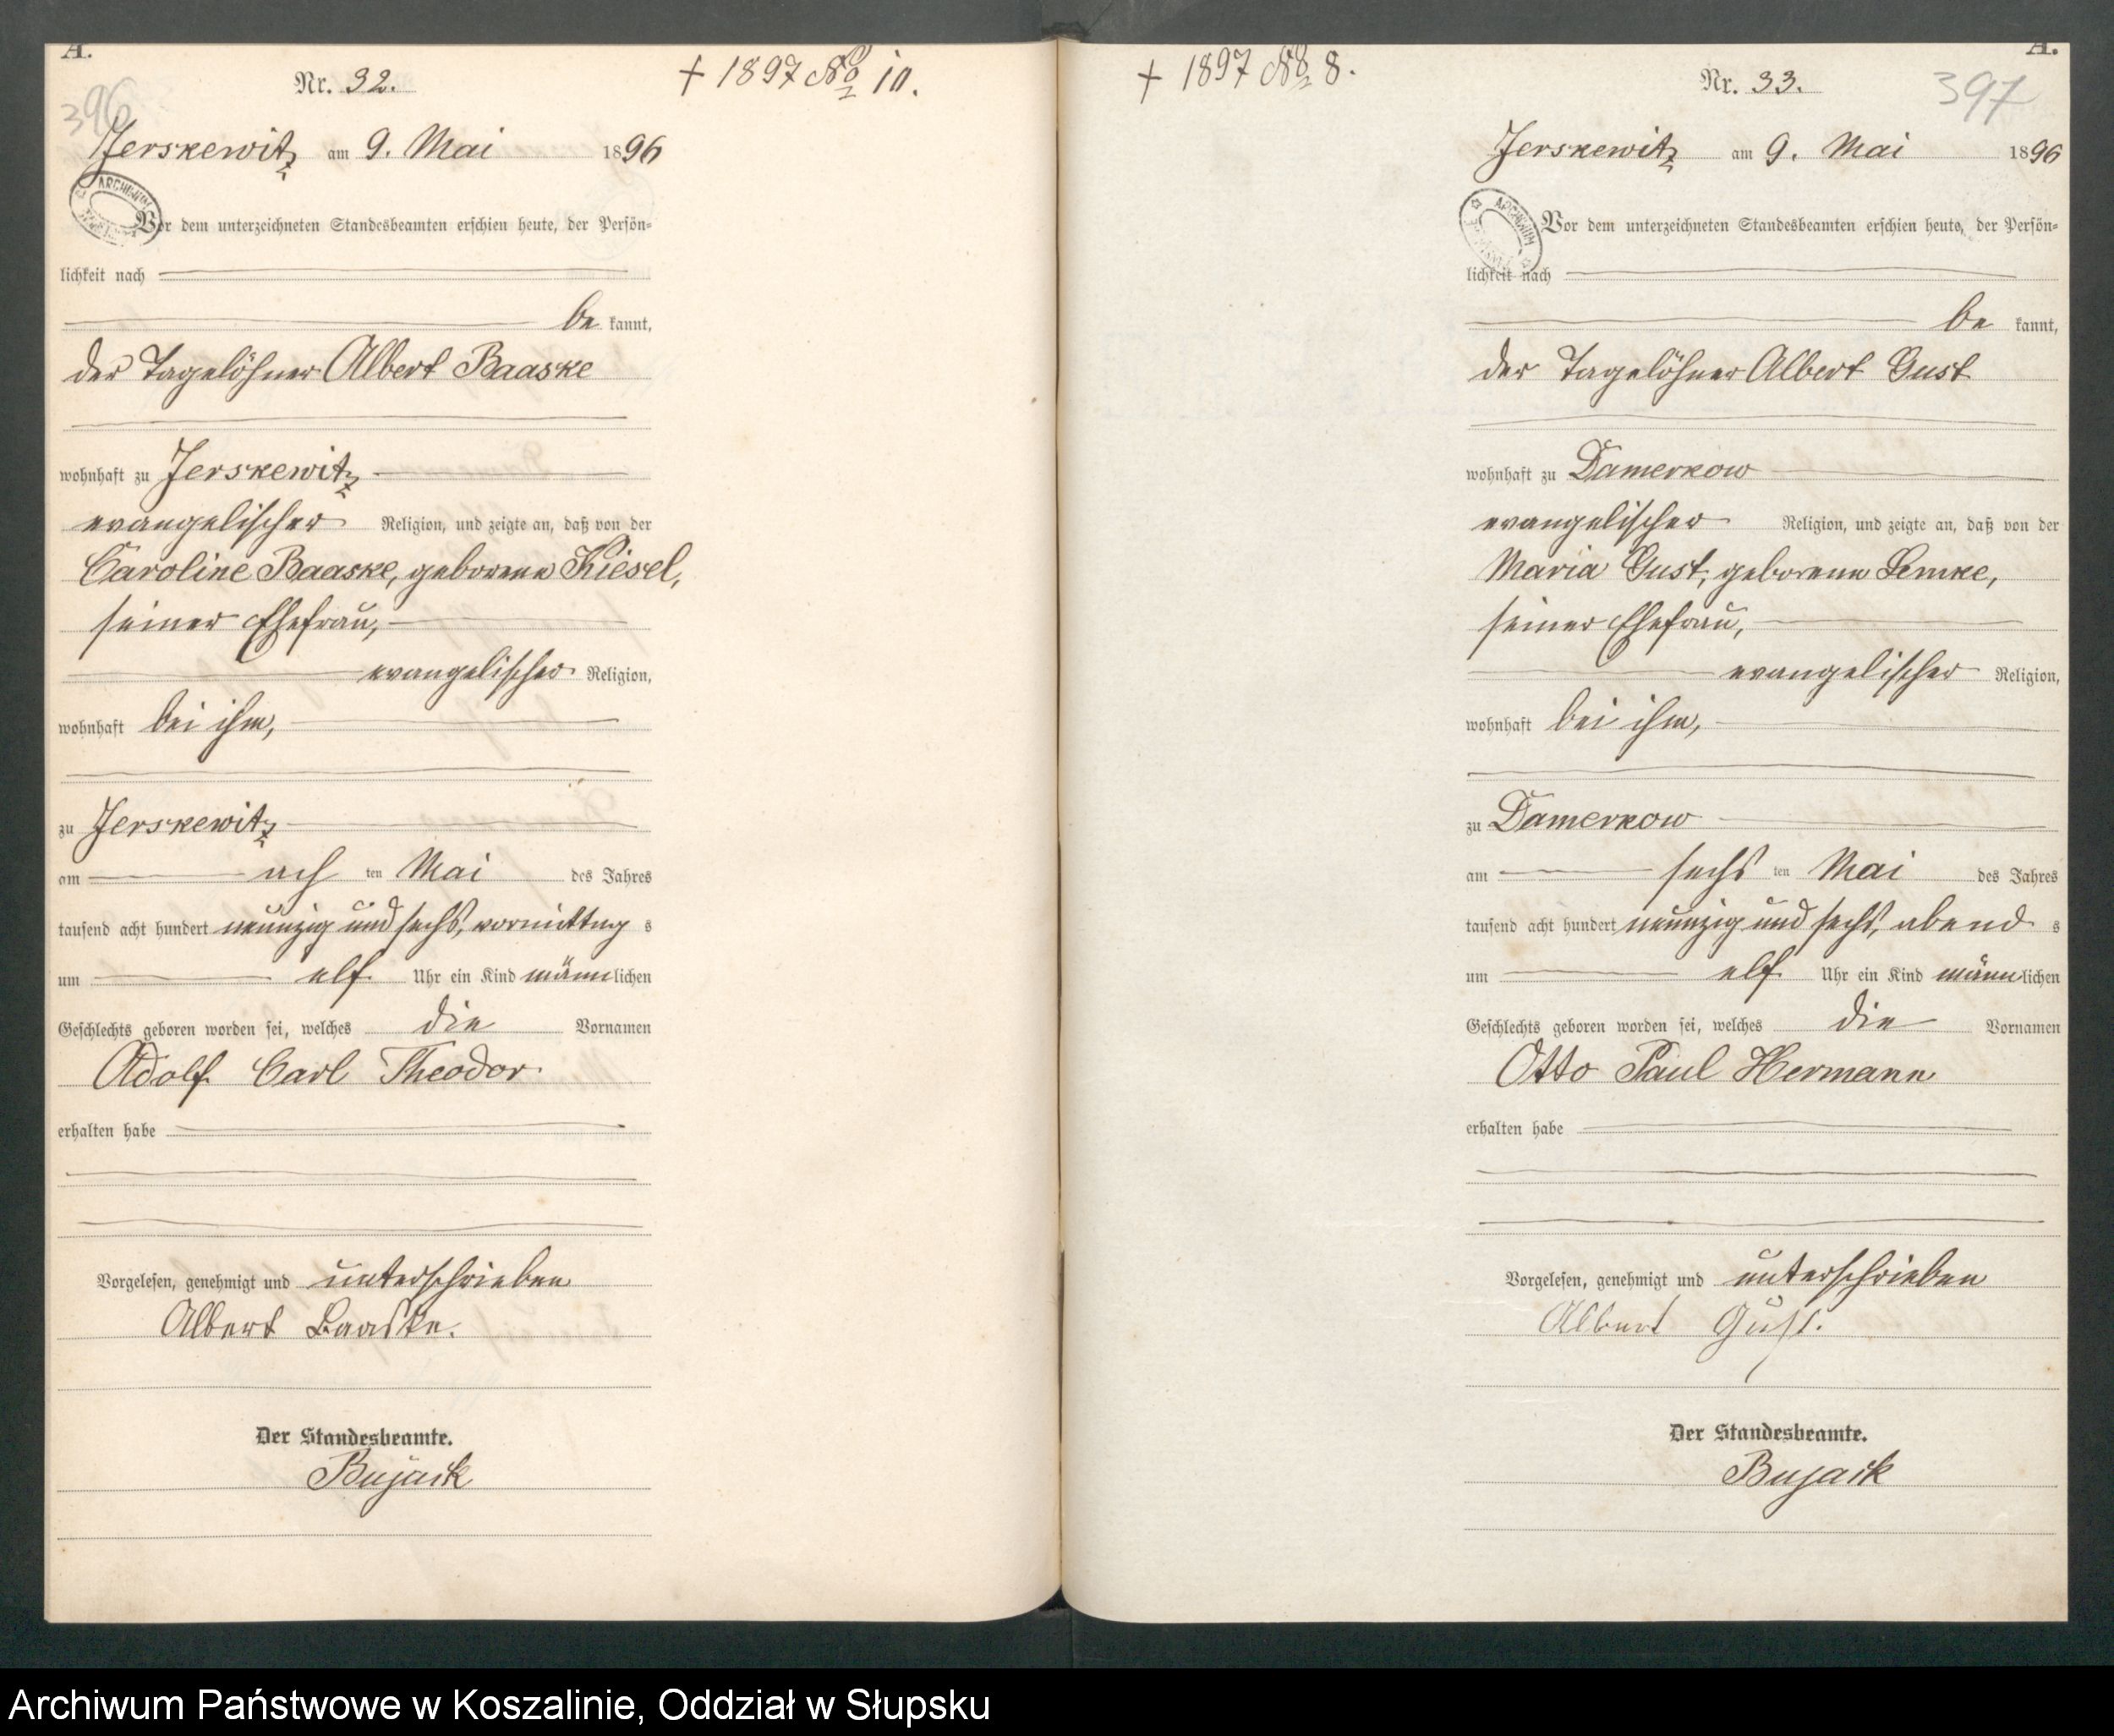 A.
Nr. 32.
+ 1897 No 10.
396
Jerskewitz am 9. Mai 1896
ARCHIWUM
Vor dem unterzeichneten Standesbeamten erschien heute, der Persön=
lichkeit nach
be kannt,
der Tagelöhner Albert Baaske
wohnhaft zu Jerskewitz
evangelischer Religion, und zeigte an, daß von der
Caroline Baaske, geborene Kiesel,
seiner Ehefrau,
evangelischer Religion,
wohnhaft bei ihm,
zu Jerskewitz
am ach ten Mai des Jahres
tausend acht hundert neunzig und sechs, vormittag s
um elf Uhr ein Kind männlichen
Geschlechts geboren worden sei, welches die Vornamen
Adolf Carl Theodor
erhalten habe
Vorgelesen, genehmigt und unterschrieben
Albert Baaske.
Der Standesbeamte.
Bujack
A.
+ 1897 No 8.
Nr. 33.
397
Jerskewitz am 9. Mai 1896
ARCHIWUM
Vor dem unterzeichneten Standesbeamten erschien heute, der Persön=
lichkeit nach
be kannt,
der Tagelöhner Albert Gust
wohnhaft zu Damerkow
evangelischer Religion, und zeigte an, daß von der
Maria Gust, geborene Lemke,
seiner Ehefrau,
evangelischer Religion,
wohnhaft bei ihm,
zu Damerkow
am sechs ten Mai des Jahres
tausend acht hundert neunzig und sechs, abend s
um elf Uhr ein Kind männlichen
Geschlechts geboren worden sei, welches die Vornamen
Otto Paul Hermann
erhalten habe
Vorgelesen, genehmigt und unterschrieben
Albert Gust.
Der Standesbeamte.
Bujack
Archiwum Państwowe w Koszalinie, Oddział w Słupsku